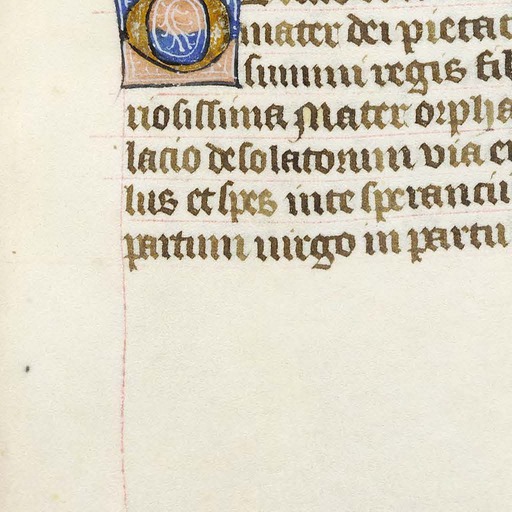 mater dei pietat
summi regis fil
riosissima Mater orpha
lacio desolatorum via er
lus et spes in te speranciu
partum uirgo in partu